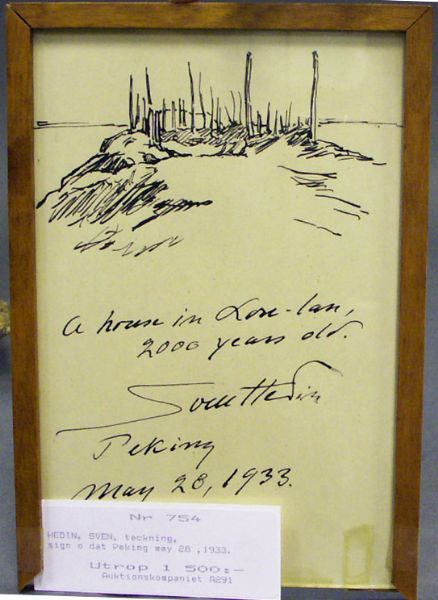 a house in Lou-lan,
2000 years old.
Sven Hedin
Peking
May 28, 1933.
Nr 754
HEDIN, SVEN, teckning,
sign o dat Peking may 28 ,1933.
Utrop 1 500:-
Auktionskompaniet A291